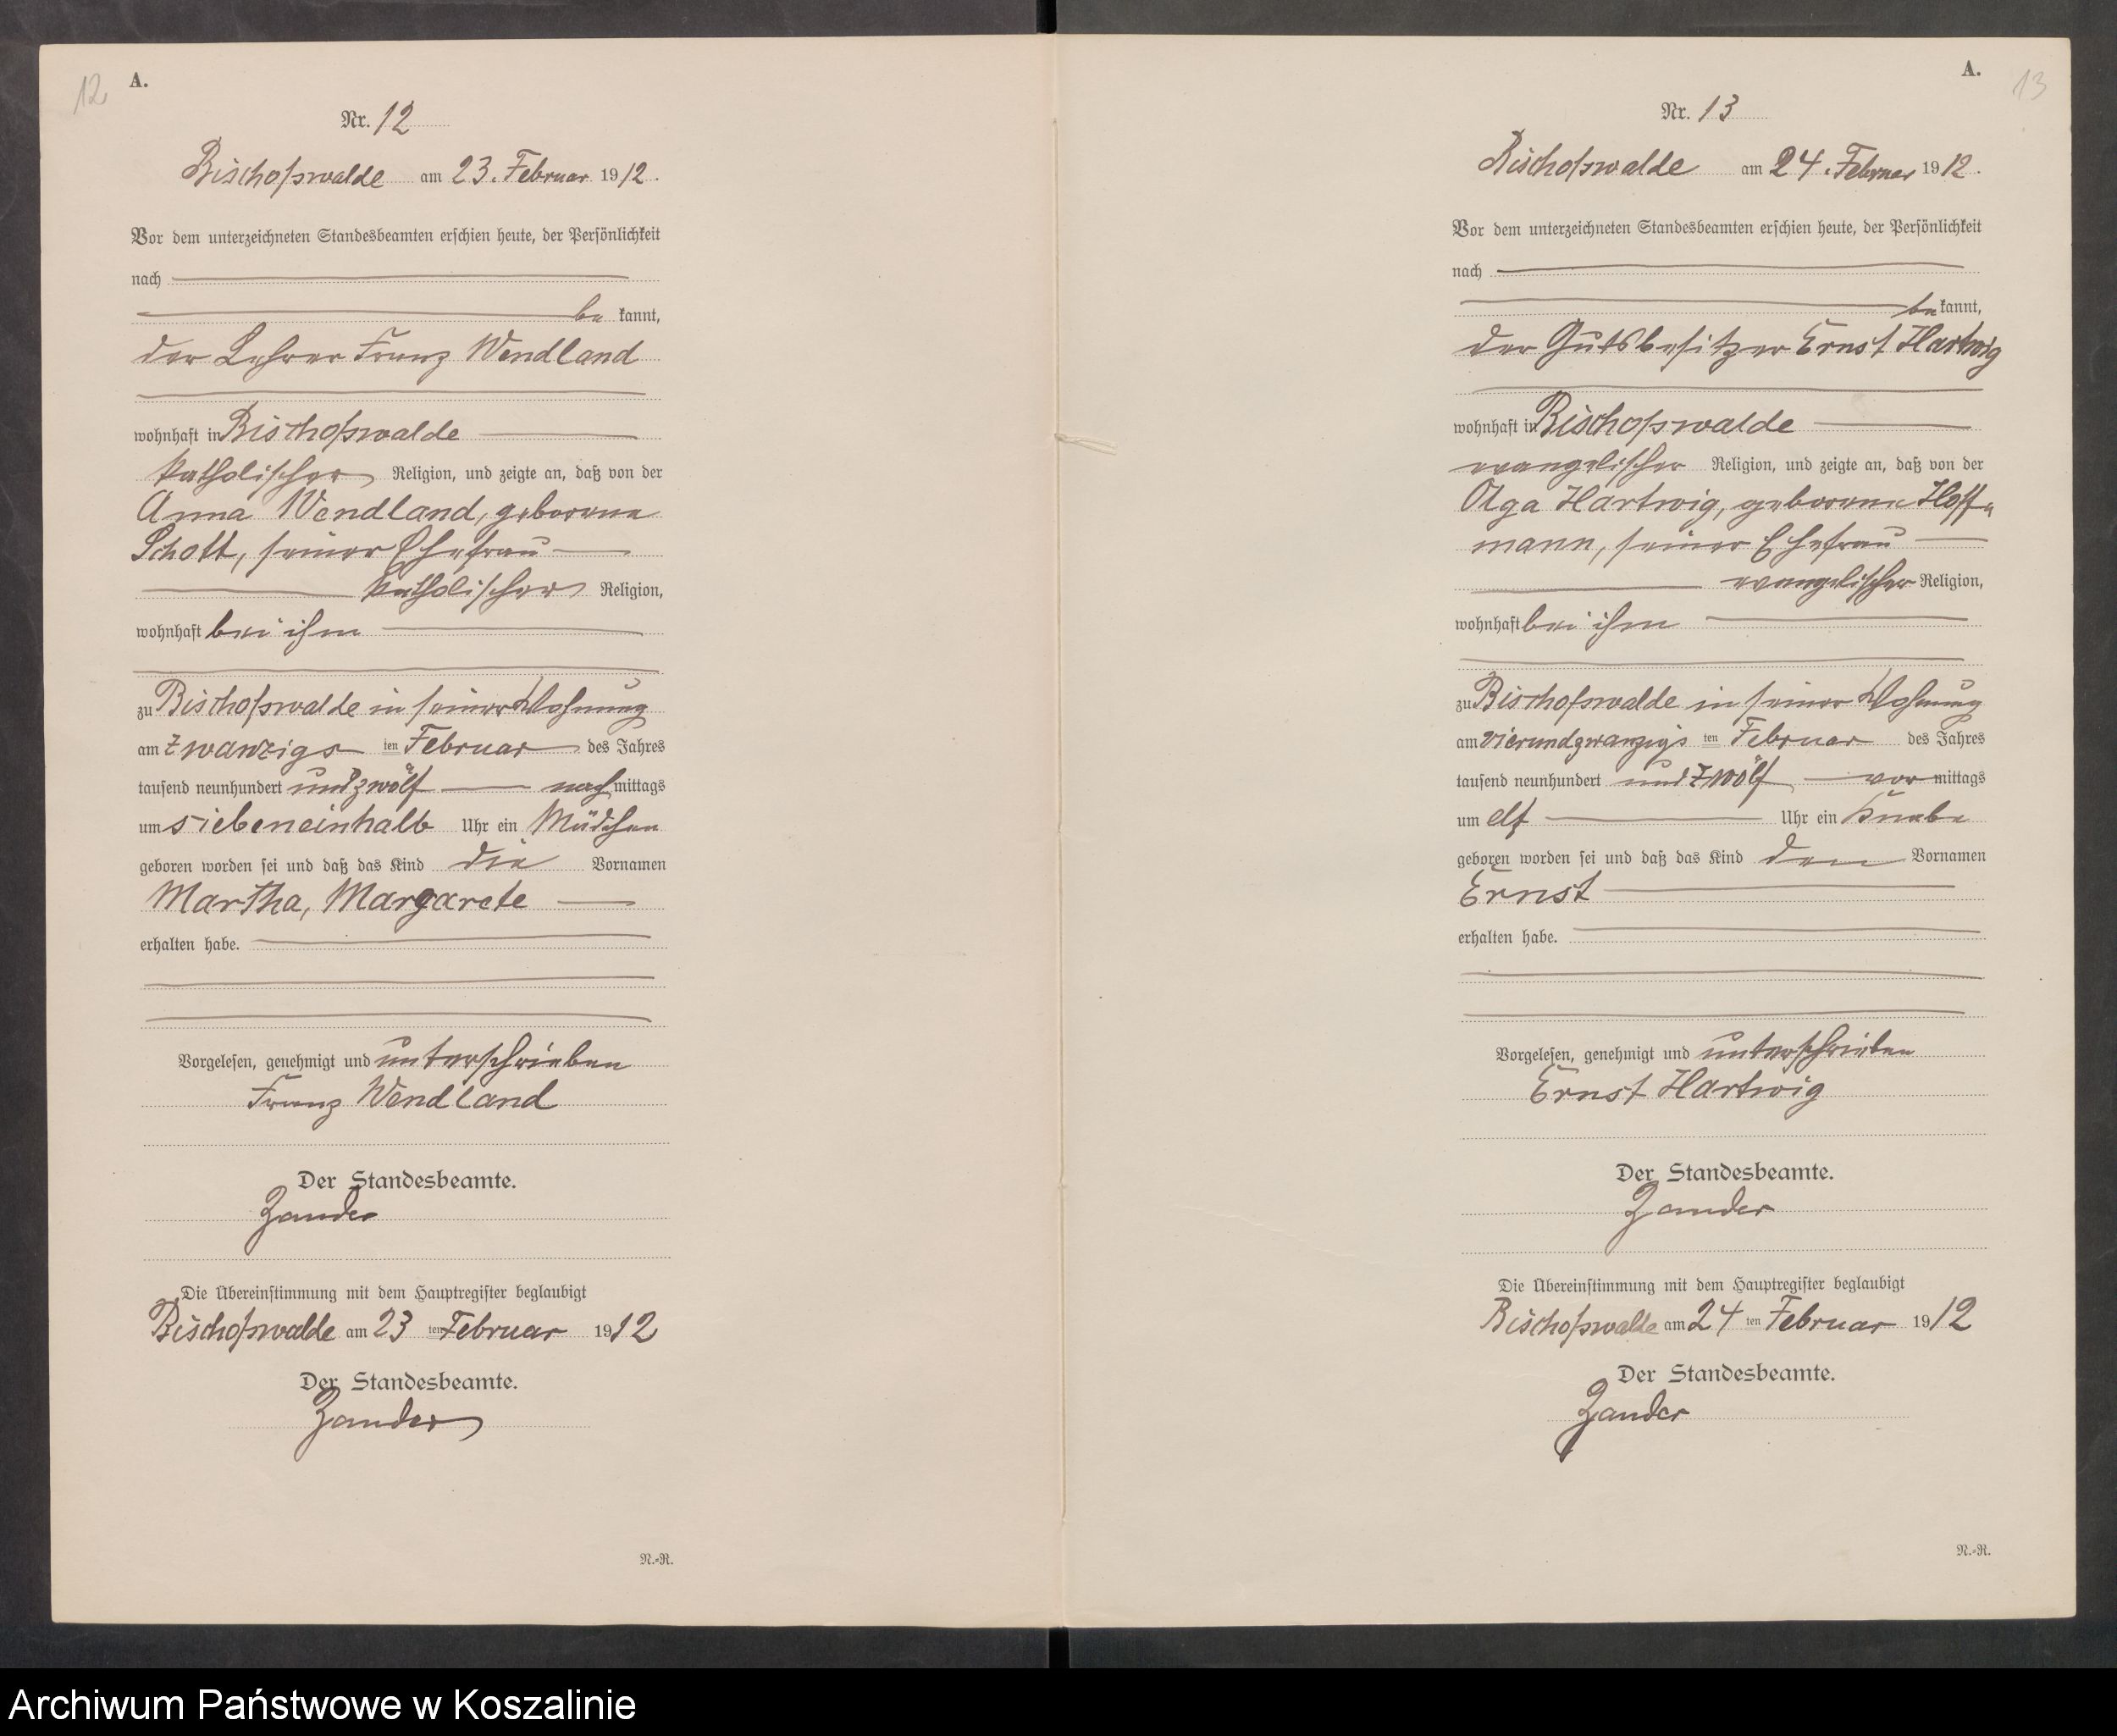 12
A.
Nr. 12
Bischofswalde am 23. Februar 1912.
Vor dem unterzeichneten Standesbeamten erschien heute, der Persönlichkeit
nach
be kannt,
der Lehrer Franz Wendland
wohnhaft in Bischofswalde
katholischer Religion, und zeigte an, daß von der
Anna Wendland, geborene
Schott, seiner Ehefrau
katholischer Religion,
wohnhaft bei ihm
zu Bischofswalde in seiner Wohnung
am zwanzigs ten Februar des Jahres
tausend neunhundert und zwölf nach mittags
um siebeneinhalb Uhr ein Mädchen
geboren worden sei und daß das Kind die Vornamen
Martha, Margarete
erhalten habe.
Vorgelesen, genehmigt und unterschrieben
Franz Wendland
Der Standesbeamte.
Zander
Die Übereinstimmung mit dem Hauptregister beglaubigt
Bischofswalde am 23 ten Februar 1912
Der Standesbeamte.
Zander
N.-R.
A.
13
Nr. 13
Bischofswalde am 24. Februar 1912.
Vor dem unterzeichneten Standesbeamten erschien heute, der Persönlichkeit
nach
be kannt,
der Gutsbesitzer Ernst Hartwig
wohnhaft in Bischofswalde
evangelischer Religion, und zeigte an, daß von der
Olga Hartwig, geborene Hoff-
mann, seiner Ehefrau
evangelischer Religion,
wohnhaft bei ihm
zu Bischofswalde in seiner Wohnung
am vierundzwanzigs ten Februar des Jahres
tausend neunhundert und zwölf vor mittags
um elf Uhr ein Knabe
geboren worden sei und daß das Kind den Vornamen
Ernst
erhalten habe.
Vorgelesen, genehmigt und unterschrieben
Ernst Hartwig
Der Standesbeamte.
Zander
Die Übereinstimmung mit dem Hauptregister beglaubigt
Bischofswalde am 24 ten Februar 1912
Der Standesbeamte.
Zander
N.-R.
Archiwum Państwowe w Koszalinie